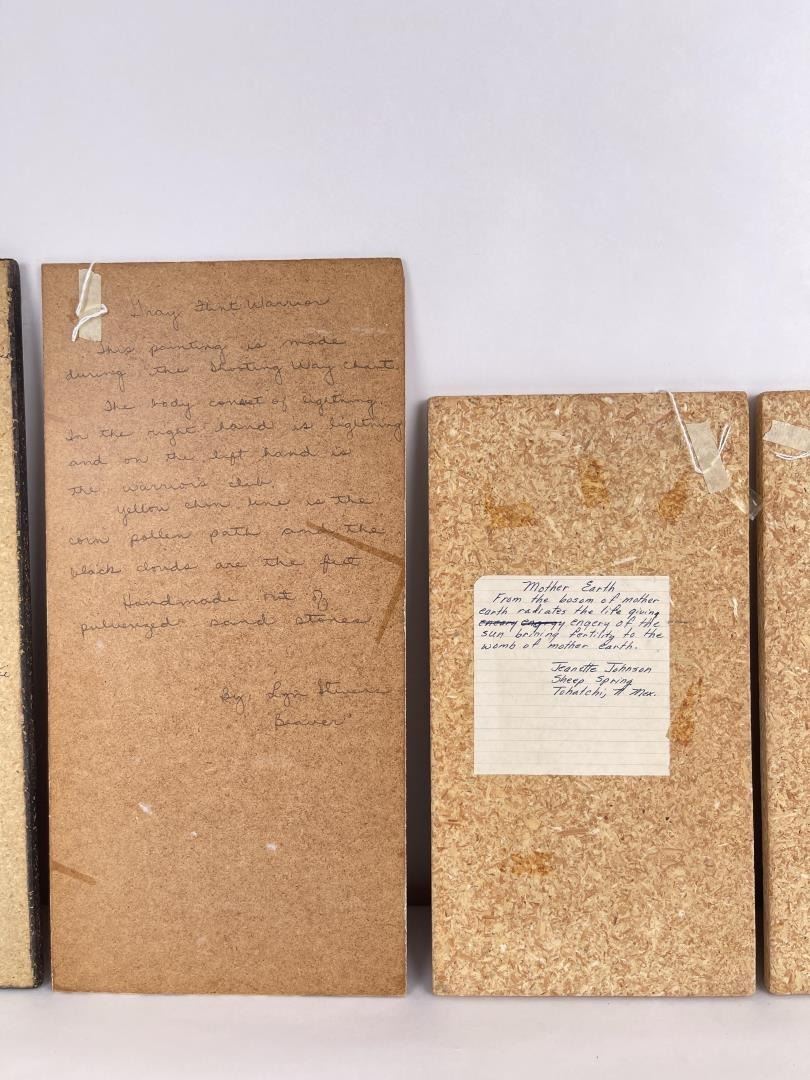 Gray Flint Warrior
This painting is made
during the Shooting Way Chant.
The body consist of lightning.
In the right hand is lightning
and on the left hand is
the warrior's club.
Yellow chin line is the
corn pollen path and the
black clouds are the feet
Handmade out of
pulverized sand stones
By, Lyn
"Beaver"
Mother Earth
From the bosom of mother
earth radiates the life giving
engery of the
sun brining fertility to the
womb of mother earth.
Jeanette Johnson
Sheep Spring
Tohatchi, N Mex.